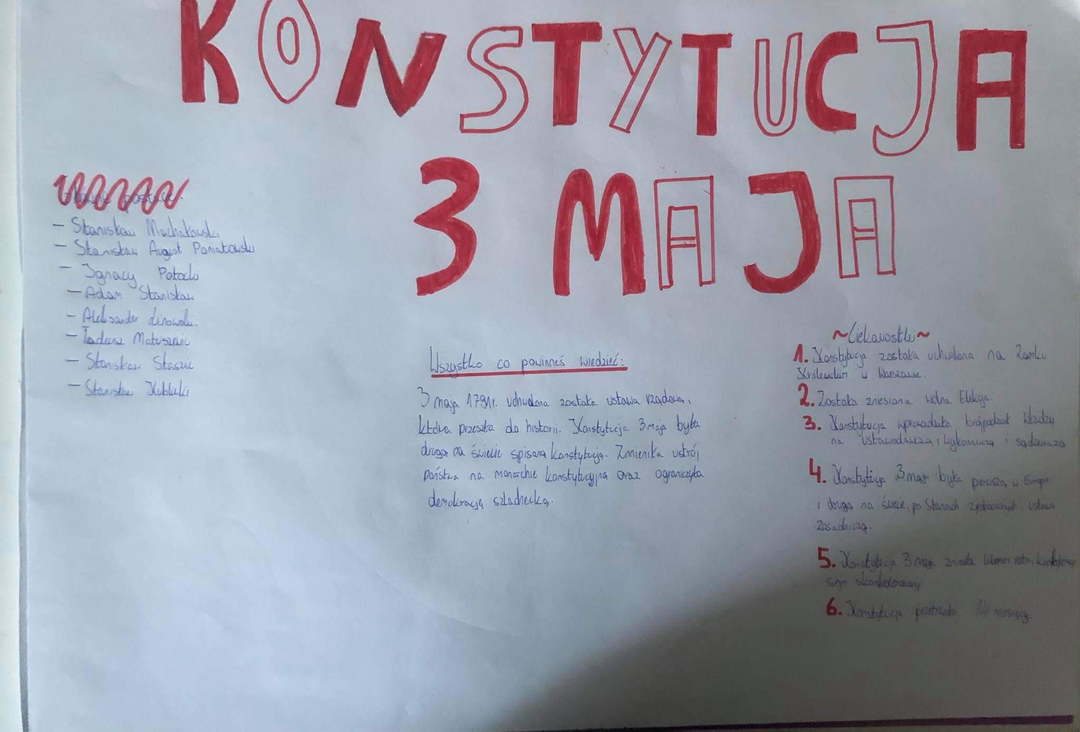 KONSTYTUCJA
3 MAJA
- Stanisław Małachowski
- Stanisław August Poniatowski
- Ignacy Potocki
- Adam Stanisław
- Aleksander Linowski.
- Tadeusz Matuszewic
- Stanisław Staszic
- Stanisław Kublicki
Wszystko co powinneś wiedzieć:
3 maja 1791r. uchwalona została ustawa rządowa,
która przeszła do historii. Konstytucja 3 maja była
drugą na świecie spisaną konstytucją. Zmieniła ustrój
państwa na monarchie konstytucyjną oraz ograniczyła
demokrację szlachecką.
~Ciekawostki~
1. Konstytucja została uchwalona na Zamku
Królewskim w Warszawie.
2. Została zniesiona wolna Elekcja.
3. Konstytucja wprowadziła trójpodział władzy
na ustawodawczą i wykonawczą i sądowniczą
4. Konstytucja 3 maja była pierwszą w Europie
i drugą na świecie, po Stanach Zjednoczonych, ustawą
zasadniczą.
5. Konstytucja 3 maja zniosła liberum veto, konfederacje
sejm skonfederowany
6. Konstytucja przetrwała 14 miesięcy.